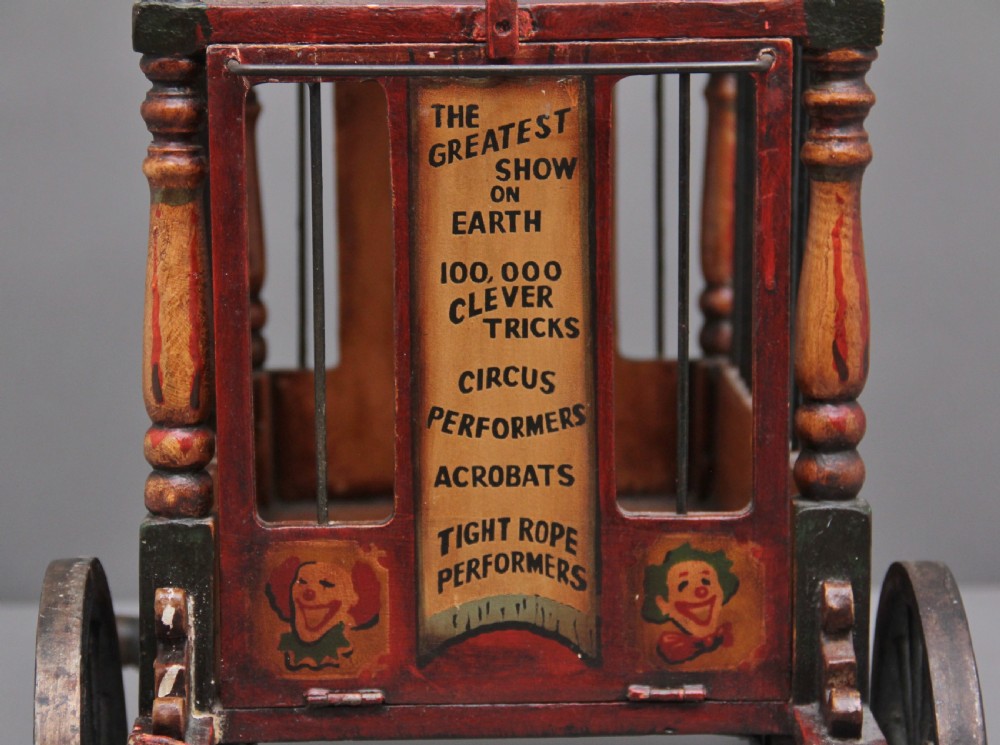 THE
GREATEST
SHOW
ON
EARTH
100,000
CLEVER
TRICKS
CIRCUS
PERFORMERS
ACROBATS
TIGHT ROPE
PERFORMERS